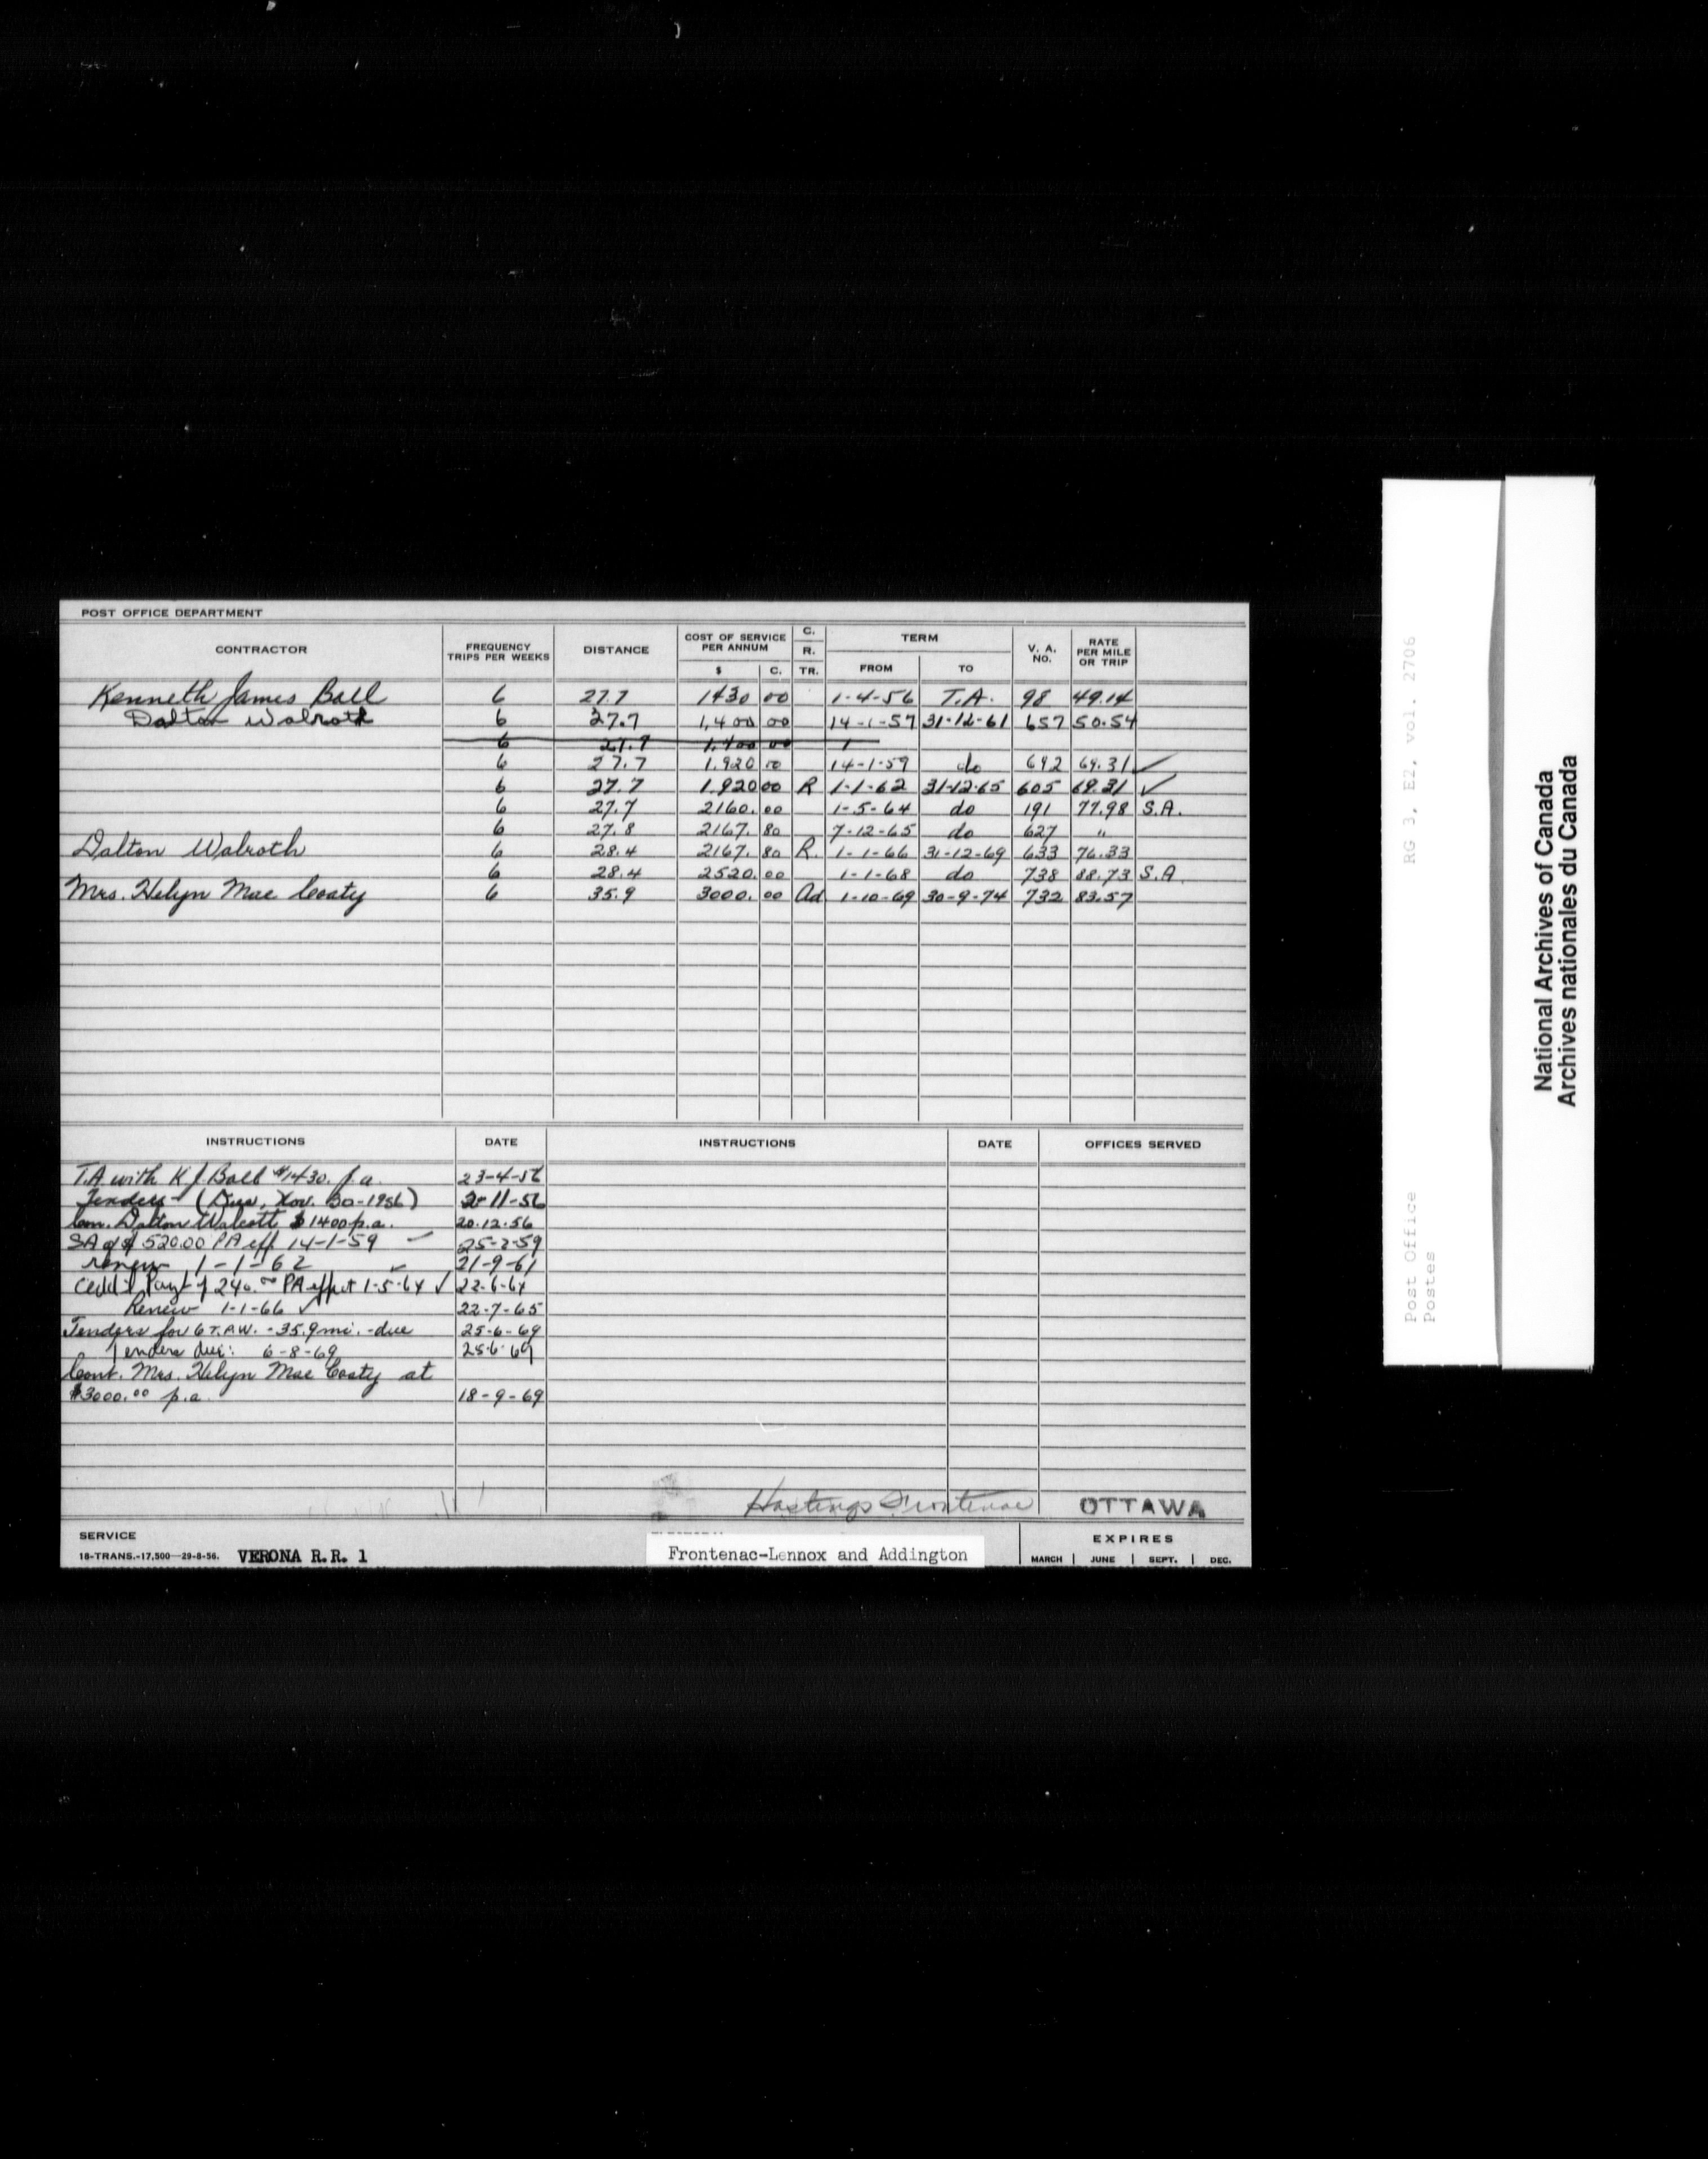 POST OFFICE DEPARTMENT
CONTRACTOR FREQUENCY TRIPS PER WEEKS DISTANCE COST OF SERVICE PER ANNUM $ C. C. R. TR. TERM FROM TO V. A. NO. RATE PER MILE OR TRIP
Kenneth James Ball 6 27.7 1430 00 1-4-56 T.A. 98 49.14
Dalton Walroth 6 27.7 1,400 00 14-1-57 31-12-61 657 50.54
6 27.7 1,400 00 1
6 27.7 1.920 00 14-1-59 do 692 69.31 ✓
6 27.7 1.920 00 R 1-1-62 31-12-65 605 69.31 ✓
6 27.7 2160.00 1-5-64 do 191 77.98 S.A.
6 27.8 2167.80 7-12-65 do 627 "
Dalton Walroth 6 28.4 2167.80 R. 1-1-66 31-12-69 633 76.33
6 28.4 2520.00 1-1-68 do 738 88.73 S.A.
Mrs. Helyn Mae Coaty 6 35.9 3000.00 Ad 1-10-69 30-9-74 732 83.57
INSTRUCTIONS DATE INSTRUCTIONS DATE OFFICES SERVED
T.A with K J. Ball $1430. p.a. 23-4-56
Tenders (Due, Nov. 30-1956) 2-11-56
Con. Dalton Walcott $1400 p.a. 20.12.56
SA of $520.00 PA eff 14-1-59 25-2-59
renew 1-1-62 ✓ 21-9-61
Payt of 240.00 PA effect 1-5-64 ✓ 22-6-64
Renew 1-1-66 ✓ 22-7-65
Tenders for 6 T.A.W. - 35.9 mi. - due 25-6-69
Tenders due: 6-8-69 25-6-69
Cont. Mrs. Helyn Mae Coaty at
$3000.00 p.a. 18-9-69
Hastings Frontenac OTTAWA
SERVICE
18-TRANS.-17,500—29-8-56. VERONA R.R. 1
Frontenac-Lennox and Addington
EXPIRES
MARCH | JUNE | SEPT. | DEC.
RG 3, E2, vol. 2706
Post Office
Postes
National Archives of Canada
Archives nationales du Canada